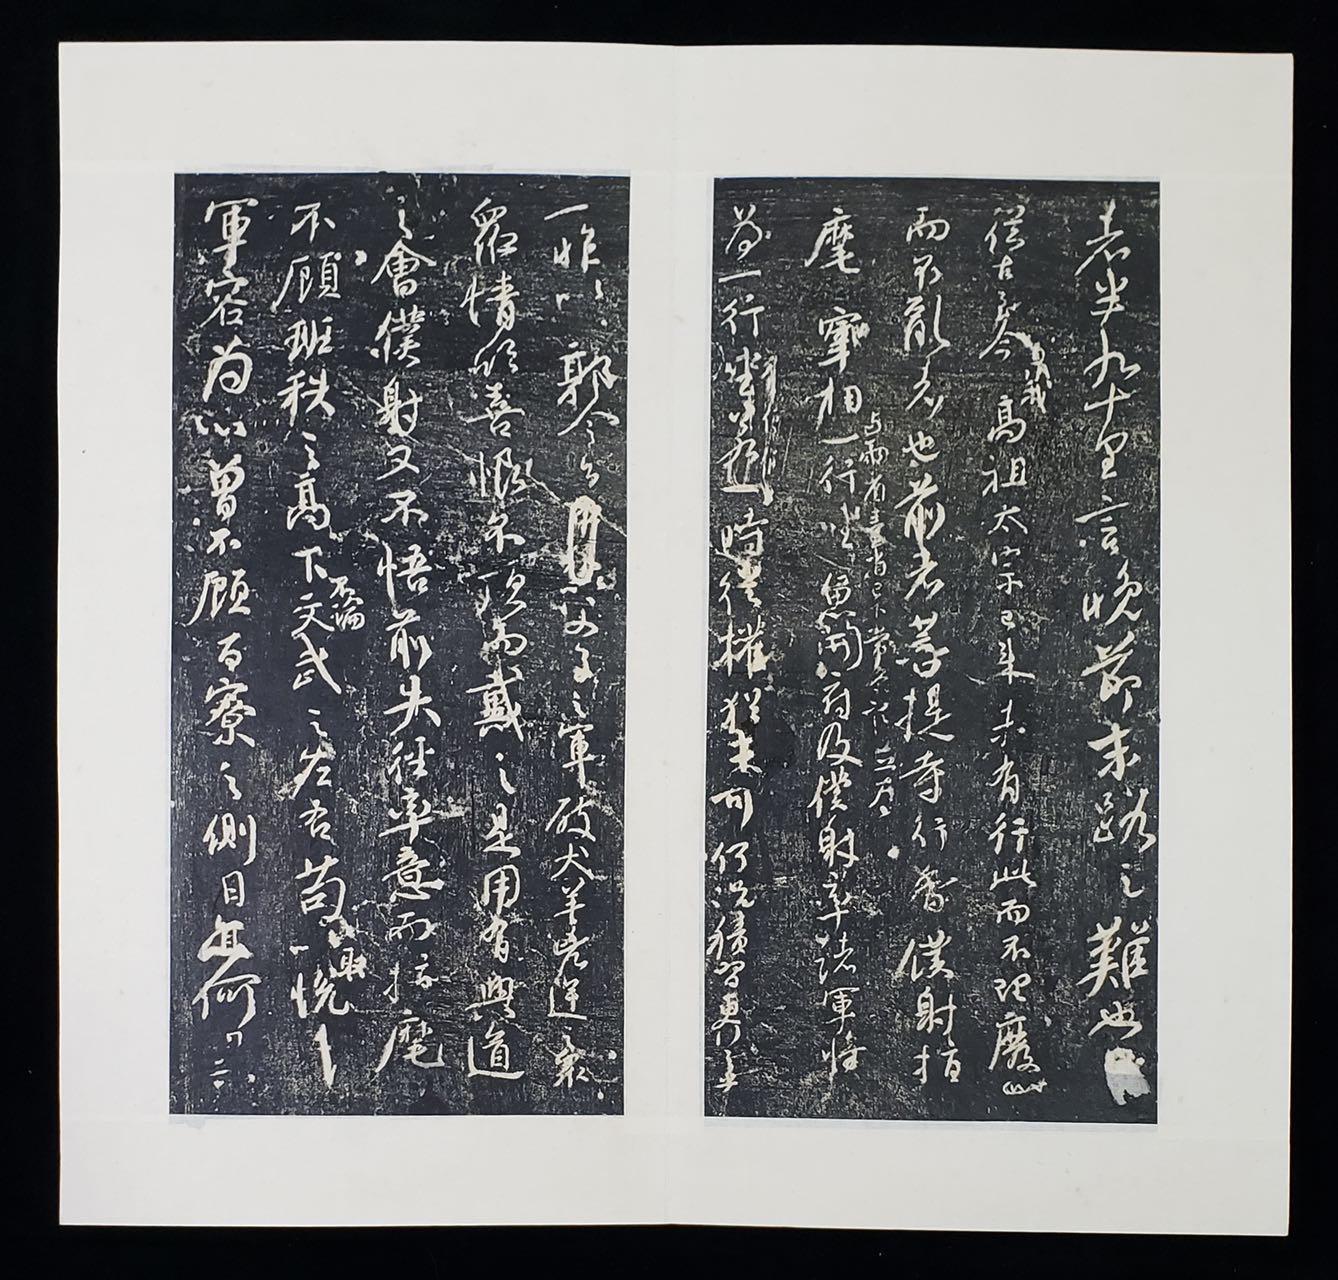 者半九十里言晚節末路之難也
從古至今我高祖太宗已來未有行此而不理廢此
而不亂者也前者菩提寺行香僕射指
麾宰相與兩省臺省已下常參官並為一行坐魚開府及僕射率諸軍將
為一行坐若一時從權猶未可何況積習更行之
一昨以郭令公父子之軍破犬羊凶逆之眾
眾情欣喜恨不頂而戴之是用有興道
之會僕射又不悟前失徑率意而指麾
不顧班秩之高下不論文武之左右苟以取悅
軍容為心曾不顧百寮之側目亦何